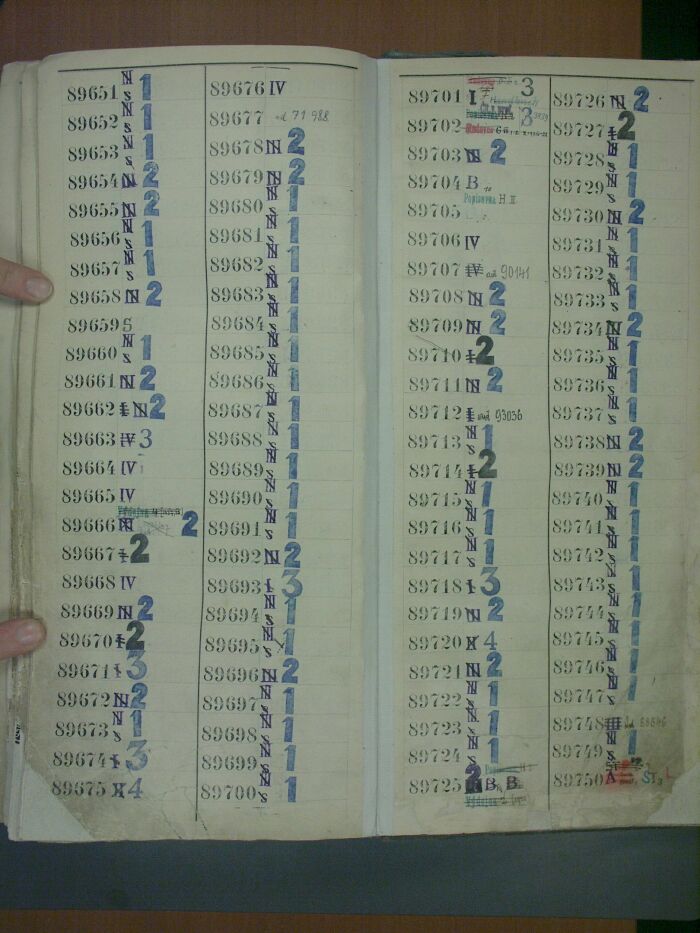 89651 N S 1
89652 N S 1
89653 N S 1
89654 N 2
89655 N 2
89656 N S 1
89657 N S 1
89658 N 2
89659 S
89660 N S 1
89661 N 2
89662 I N 2
89663 IV 3
89664 IV
89665 IV
89666 N 2
89667 I 2
89668 IV
89669 N 2
89670 I 2
89671 I 3
89672 N 2
89673 N S 1
89674 I 3
89675 X 4
89676 IV
89677 ad 71988
89678 N 2
89679 N 2
89680 N S 1
89681 N S 1
89682 N S 1
89683 N S 1
89684 N S 1
89685 N S 1
89686 N S 1
89687 N S 1
89688 N S 1
89689 N S 1
89690 N S 1
89691 N S 1
89692 N 2
89693 I 3
89694 N S 1
89695 N S 1
89696 N 2
89697 N S 1
89698 N S 1
89699 N S 1
89700 N S 1
89701 I 3
89702 3
89703 N 2
89704 B
Popisovna H.II
89705
89706 IV
89707 IV ad 90141
89708 N 2
89709 N 2
89710 I 2
89711 N 2
89712 I ad 93036
89713 N S 1
89714 I 2
89715 N S 1
89716 N S 1
89717 N S 1
89718 I 3
89719 N 2
89720 X 4
89721 N 2
89722 N S 1
89723 N S 1
89724 N S 1
89725 2 B, B
89726 N 2
89727 I 2
89728 N S 1
89729 N S 1
89730 N 2
89731 N S 1
89732 N S 1
89733 N S 1
89734 N 2
89735 N S 1
89736 N S 1
89737 N S 1
89738 N 2
89739 N 2
89740 N S 1
89741 N S 1
89742 N S 1
89743 N S 1
89744 N S 1
89745 N S 1
89746 N S 1
89747 N S 1
89748 III
89749 N S 1
89750 A ST3 L